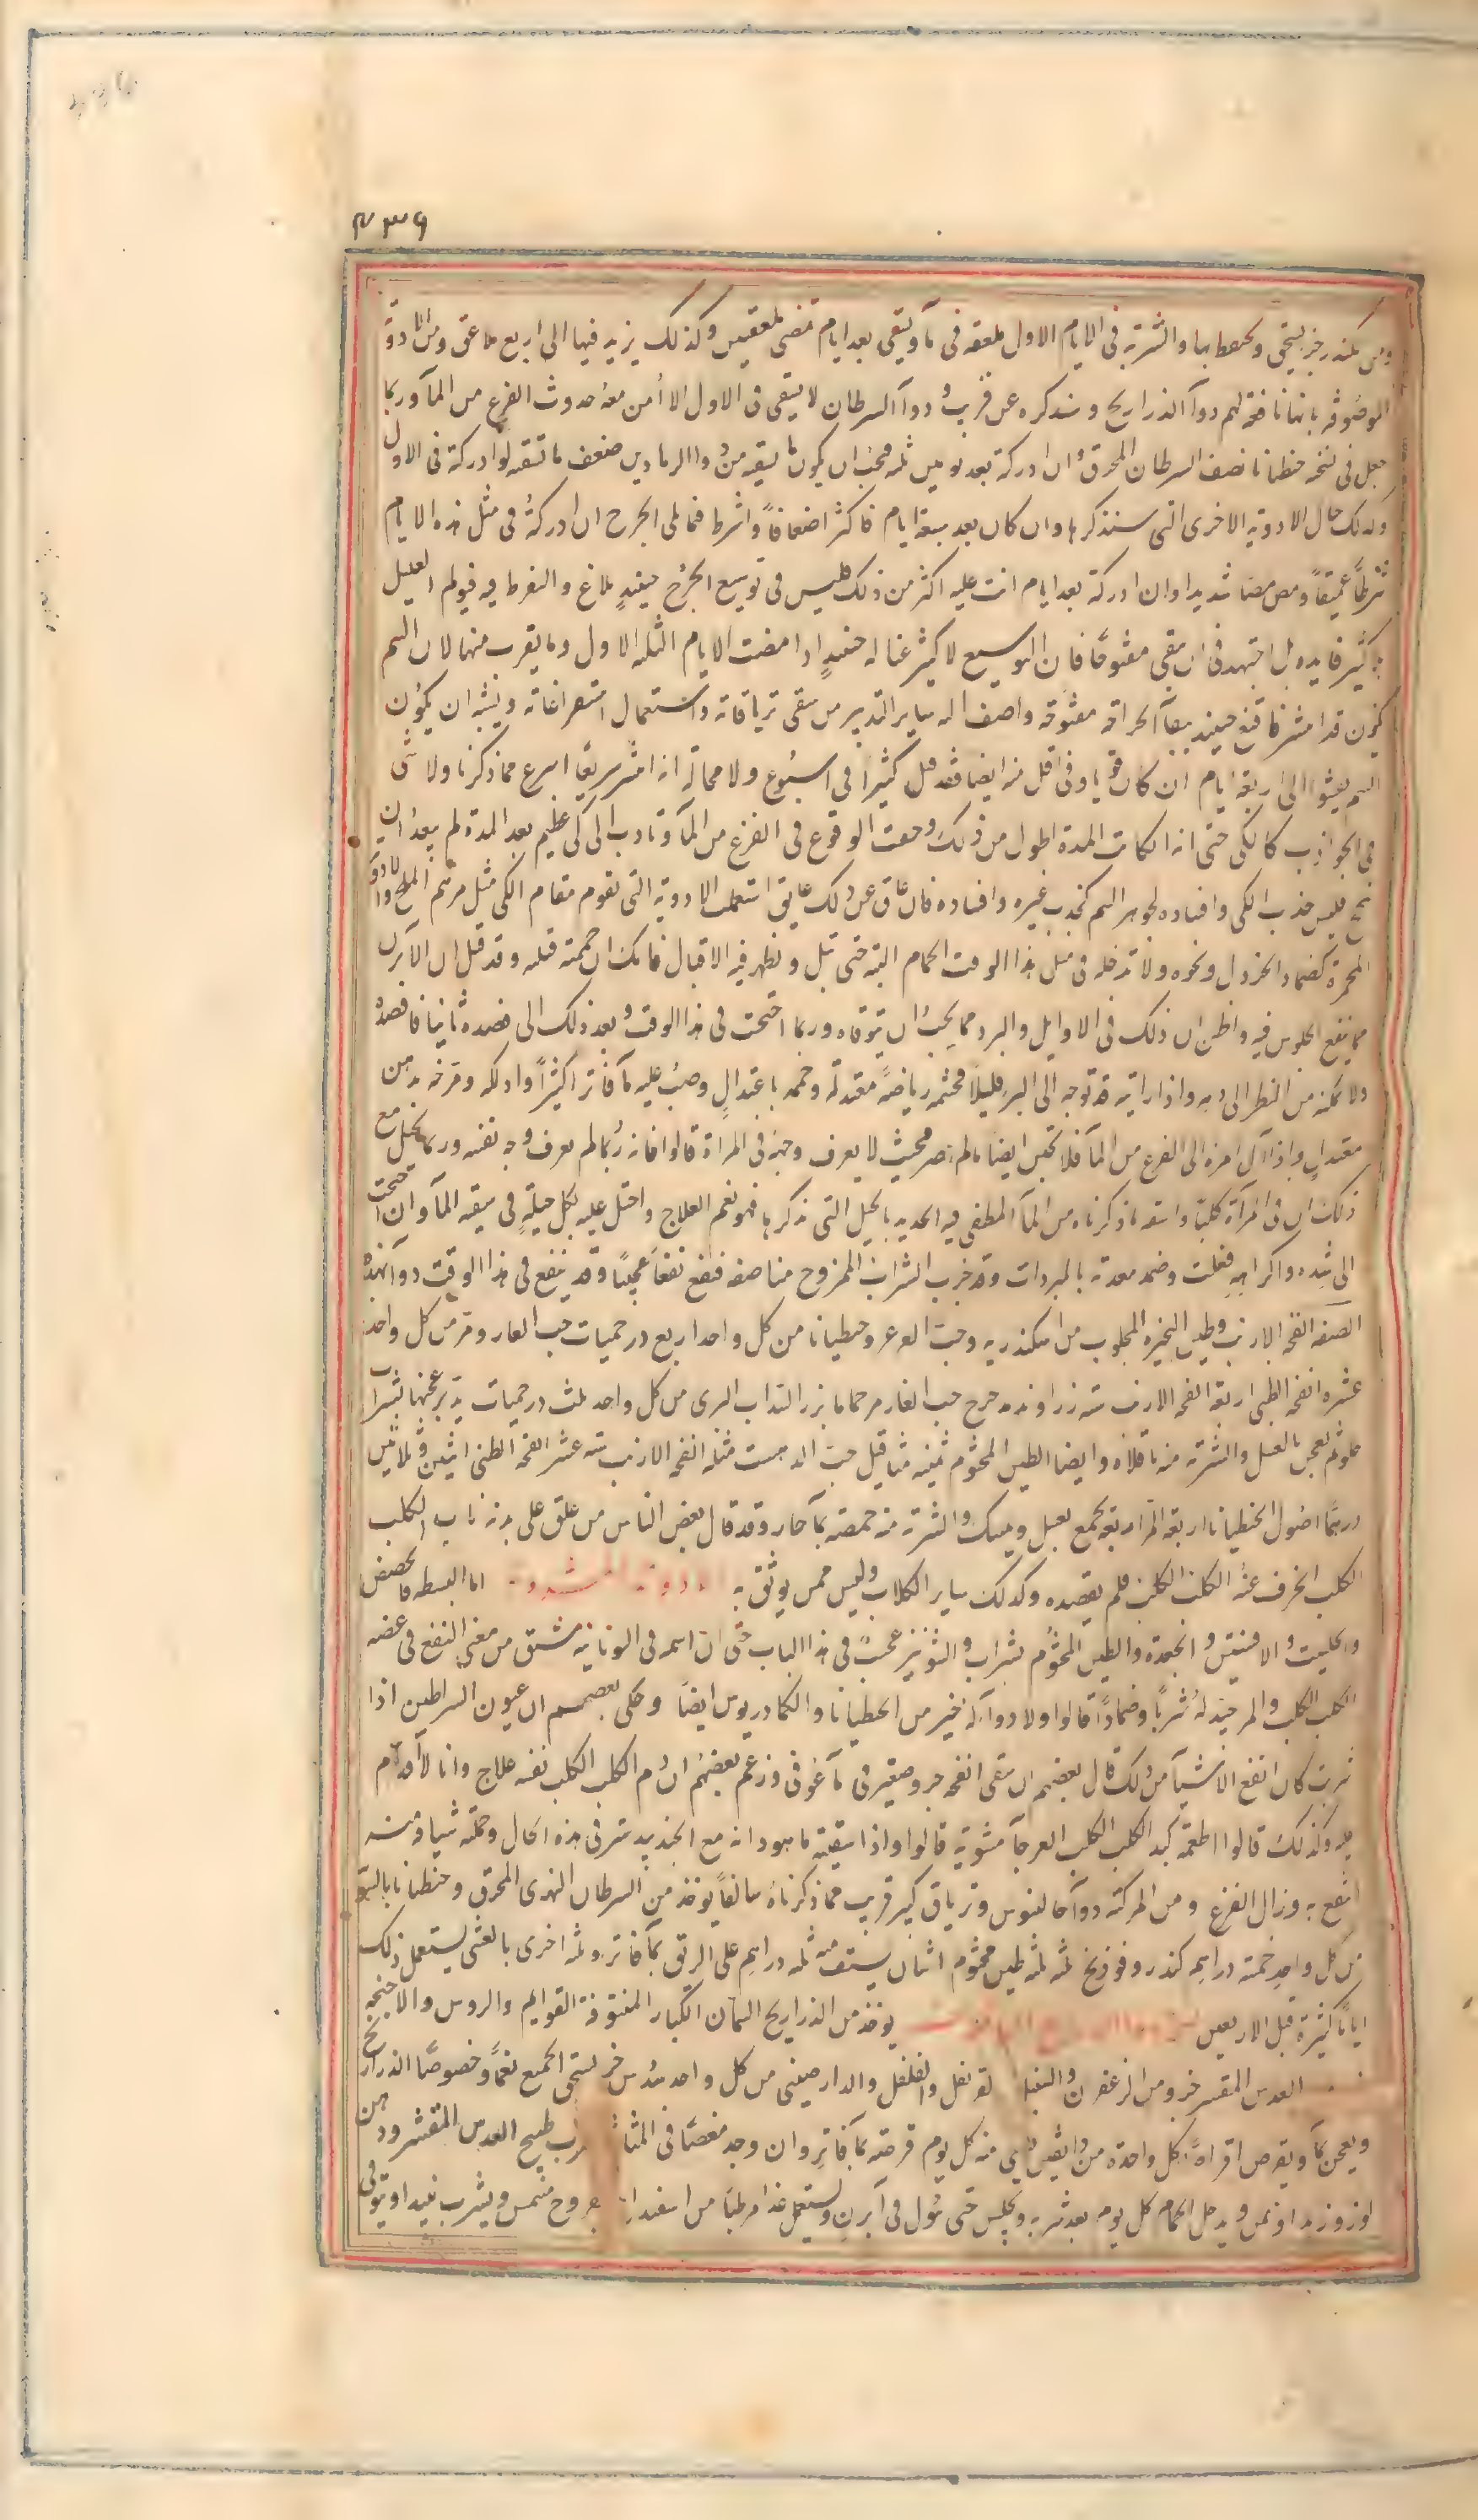 ٢٣٩
ومن كندر جزء يسحق ويحتفظ بها والشربة فى الايام الاول ملعقة فى مآء ويسقى بعد ايام تمضى ملعقتين وكذلك يزيد فيها الى اربع ملاعق ومن الادوية
الموصوفة بانها نافعة لهم دوآء الذراريح وسنذكره عن قريب ودوآء السرطان لا يسقى فى الاول الا أمن معه حدوث الفزع من المآء وربما
جعل فى نسخه جنطيانا نصف السرطان المحرق وان ادركته بعد يومين ثلثه فيجب ان يكون ما يسقيه من دوا الرمادين ضعف ما تسقيه لو ادركته فى الاول
وكذلك حال الادوية الاخرى التى سنذكرها وان كان بعد سبعة ايام فاكثر اضعافاً واشرط فما على الجرح ان ادركته فى مثل هذه الايام
شرطاً عميقاً ومص مصا شديدا وان ادركته بعد ايام اتت عليه اكثر من ذلك فليس فى توسيع الجرح حينئذٍ بلاغ والمفرط فيه فيولم العليل
بلا كثير فايده بل اجتهد فى ان يبقى مفتوحاً فان التوسيع لا كثير غنا له حينئذٍ اذا مضت الايام الثلثه الاول وما يقرب منها لان السم
يكون قد انتشر فاقنع حينئذ ببقآء الجراحه مفتوحه واضف اليه ساير التدبير من سقى ترياقاته واستعمال استفراغاته ويشبه ان يكون
السم يفشوا الى اربعة ايام ان كان قويا وفى اقل منه ايضا فقد قتل كثيراً فى اسبوع ولا محالة انه انتشر سريعاً اسرع مما ذكرنا ولا شى
فى الجواذب كالكى حتى انه ان كانت المدة اطول من ذلك وخفت الوقوع فى الفزع من المآء وبادرت الى كى عظيم بعد المدة لم يبعد ان
ينجع فليس جذب الكى وافساده لجوهر السم كجذب غيره وافساده فان عاق عن ذلك عايق استعملت الادوية التى تقوم مقام الكى مثل مرهم الملح والادوية
المحمرة كضماد الخردل ونحوه ولا تدخله فى مثل هذا الوقت الحمام البته حتى تبل ويظهر فيه الاقبال فانك ان حممته قتلته وقد قيل ان الابزن
مما ينفع الجلوس فيه واظن ان ذلك فى الاوايل والبرد مما يجب ان يتوقاه وربما احتجت فى هذا الوقت وبعد ذلك الى فصده ثانيا فافصدُ
ولا تمكنه من النظر الى دمه واذا رايته قد توجه الى البرء قليلاً فجشمه رياضةً معتدلة وحممه باعتدالٍ وصبّ عليه مآء فاترا كثيراً وادلكه ومرخه بدهن
معتدلٍ واذا آل امره الى الفزع من المآء فلا تيأس ايضا ما لم يصر بحيث لا يعرف وجهه فى المراة قالوا فانه ربما لم يعرف وجه نفسه وربما تخيل مع
ذلك ان فى المرآة كلبا واسقه ما ذكرناه من المآء المطفى فيه الحديد بالحيل التى نذكرها فهو نعم العلاج واحتل عليه بكل حيلةٍ فى سقيه المآء وان احتجت
الى شده واكراهه فعلت وضمد معدته بالمبردات وقد جرب الشراب الممزوج مناصفه فنفع نفعاً عجيباً وقد ينفع فى هذا الوقت دوآء بهذه
الصفة انفحة الارنب وطين البحيره المجلوب من اسكندريه وحب العرعر وجنطيانا من كل واحد اربع درخميات حب الغار ومر من كل واحد
عشره انفحة الظبى اربعة انفحة الارنب ستة زراوند مدحرج حب الغار مر حماما بزر السذاب البرى من كل واحد ثلث درخميات يدبر عجنها بشراب
حلو ثم يعجن بالعسل والشربة منه باقلاة وايضا الطين المختوم ثمنيه مثاقيل حب الدهمست مثله انفحة الارنب ستة عشر انفحة الظبى اثنين وثلاثين
درهمًا اصول الجنطيانا اربعة المر اربعة يجمع بعسل ويمسك والشربة منه حمصة بمآء حار وقد قال بعض الناس من علق على بدنه ناب الكلب
الكلب انحرف عنه الكلب الكلب فلم يقصده وكذلك ساير الكلاب وليس ممن يوثق به الادوية المشروبة اما البسيطه فالحضض
والحلتيت والافسنتين والجعدة والطين المختوم بشراب والشونيز عجب فى هذا الباب حتى ان اسمه فى اليونانية مشتق من معنى النفع فى عضه
الكلب الكلب والمر جيد له شرباً وضماداً قالوا ولا دوآء له خير من الجنطيانا والكمادريوس ايضاً وحكى بعضهم ان عيون السراطين اذا
شربت كان انفع الاشيآء من ذلك قال بعضهم ان سقى انفحة جرو صغير فى مآء عوفى وزعم بعضهم ان دم الكلب الكلب نفسه علاج وانا لا اقدم
عليه وكذلك قالوا اطعمه كبد الكلب الكلب العرجآء مشوية قالوا واذا سقيته ما هو دانه مع الجندبيدستر فى هذه الحال وحملته شيافا منه
انتفع به وزال الفزع ومن المركبة دوآء جالينوس وترياق كبير قريب مما ذكرناه سالفاً يوخذ من السرطان النهرى المحرق وجنطيانا بالسوية
من كل واحدٍ خمسة دراهم كندر وفوذنج ثلثه ثلثه طين مختوم اثنان يستف منه ثلثه دراهم على الريق بمآء فاتر وثلثه اخرى بالعشى يستعمل ذلك
اياماً كثيرة قبل الاربعين يوخذ من الذراريح السمان الكبار المنتوفة القوايم والروس والاجنحه
العدس المقشر جزو ومن الزعفران والسنبل والقرنفل والفلفل والدارصينى من كل واحد سدس جزء يسحق الجميع نعماً وخصوصاً الذراريح
ويعجن بمآء ويقرص اقراصاً كل واحدة من دانقين يسقى منه كل يوم قرصة بمآء فاترٍ وان وجد مغصاً فى المثانة شرب طبيخ العدس المقشر ودهن
لوز وزبدا وسمن ويدخل الحمام كل يوم بعد شربه ويجلس حتى يبول فى آبزن ويستعمل غذا مرطباً من اسفيداج بفروج مسمن ويشرب نبيذا ويتوقى